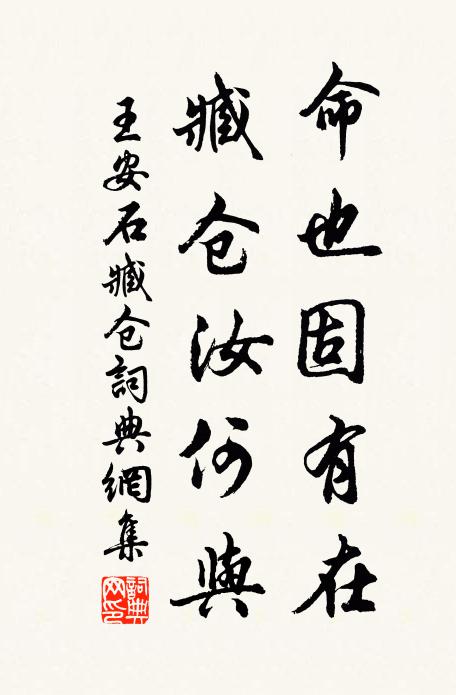 命也固有在
臧仓汝何與
王安石臧仓詞典網集
詞典网印